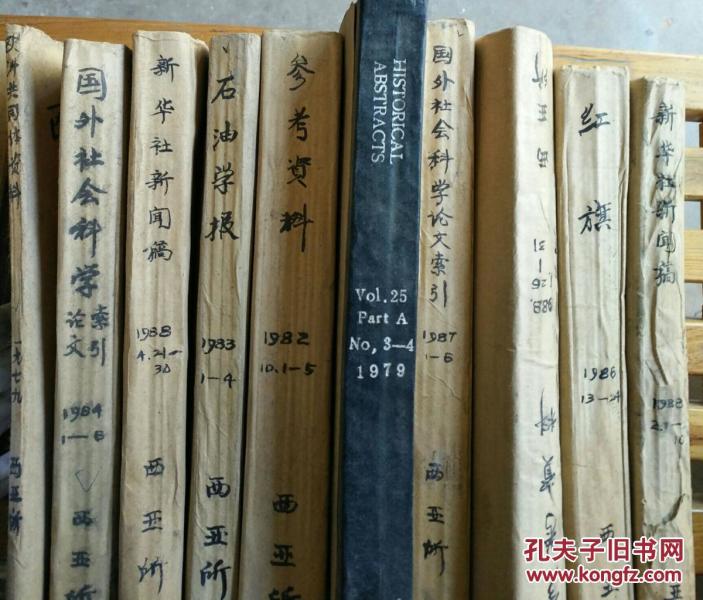 欧洲共同体资料
一九七九
西亚所
国外社会科学
论文索引
1984
1—6
西亚所
新华社新闻稿
1988
4.21—
30
西亚所
石油学报
1983
1—4
西亚所
参考資料
1982
10.1—5
西亚所
HISTORICAL
ABSTRACTS
Vol.25
Part A
No, 3—4
1979
国外社会科学论文索引
1987
1—6
西亚所
参考資料
1988.
1.26—31
西亚所
红旗
1986
13—24
西亚
新华社新闻稿
1988
2.1—
10
西亚
孔夫子旧书网
www.kongfz.com